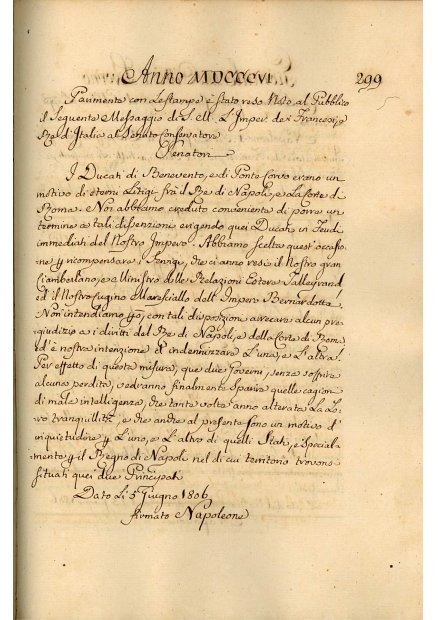 Anno MDCCCVI 299
Parimente con Le stampe è stato reso Noto al Pubblico
il Seguente Messaggio di S. M. L'Imper. de i Francesi, e
Re d'Italia al Senato Conservatore
Senatori
I Ducati di Benevento, e di Ponte Corvo erano un
motivo di eterni Litigi frà il Re di Napoli, e La Corte di
Roma. Noi abbiamo creduto conveniente di porre un
termine a tali dissenzioni erigendo quei Ducati in Feudi
immediati del Nostro Impero. Abbiamo scelto quest'occasio-
ne p ricompensare i servizj, che ci anno resi il Nostro gran
Ciambellano, e Ministro delle Relazioni Estere Tallegrand
ed il Nostro Cugino Maresciallo dell'Impero Bernardotte.
Non intendiamo già, con tali disposizioni arrecare alcun pre-
giudizio a i diritti del Re di Napoli, e della Corte di Roma
ed è nostra intenzione d'indennizzare L'una, e L'altra.
Per effetto di questa misura, que due Governi, senza soffrire
alcuna perdita, vedranno finalmente Sparire quelle cagioni
di male intelligenza, che tante volte anno alterata La Lo-
ro tranquillità, e che anche al presente sono un motivo d'
inquietudine p L'uno, e L'altro di quelli Stati, e special-
mente p il Regno di Napoli nel di cui territorio trovansi
situati quei due Principati
Dato Li 5 Giugno 1806
firmato Napoleone